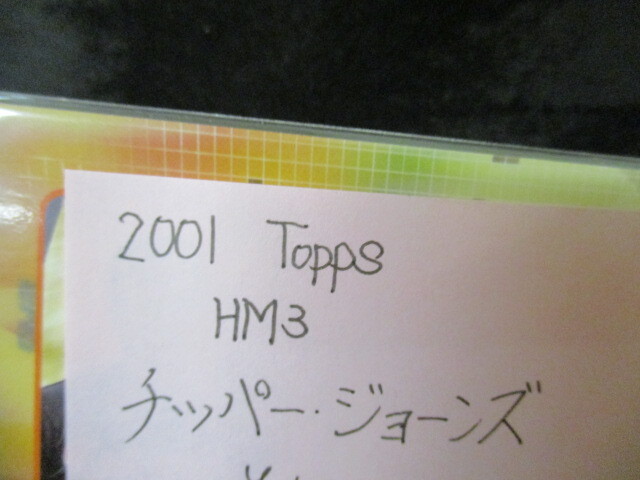 2001 Topps
HM3
チッパー・ジョーンズ